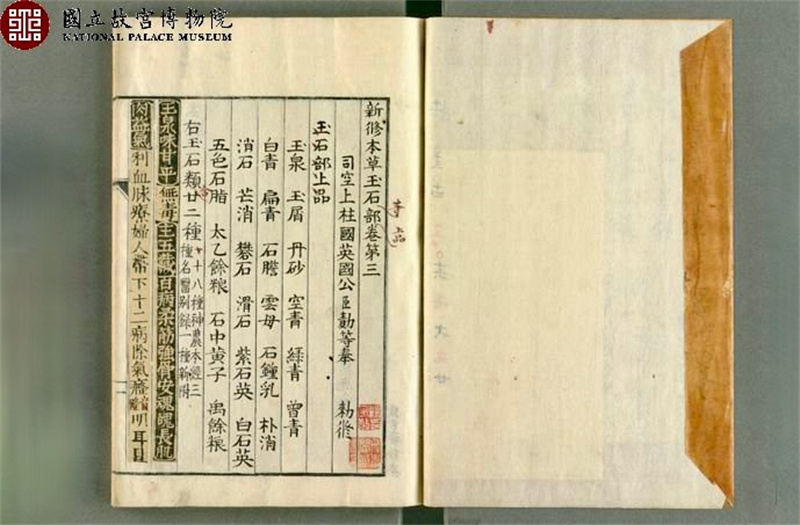 國立故宮博物院
NATIONAL PALACE MUSEUM
新修本草玉石部卷第三
司空上柱國英國公臣勣等奉 勅修
玉石部上品
玉泉 玉屑 丹砂 空青 綠青 曾青
白青 扁青 石膽 雲母 石鍾乳 朴消
消石 芒消 礬石 滑石 紫石英 白石英
五色石脂 太乙餘粮 石中黄子 禹餘粮
右玉石類廿二種 十八種神農本經三
種名醫别録一種新附
玉泉味甘平無毒主五藏百病柔筋強骨安魂魄長肌
肉益氣利血脉療婦人帶下十二病除氣癃 明耳目